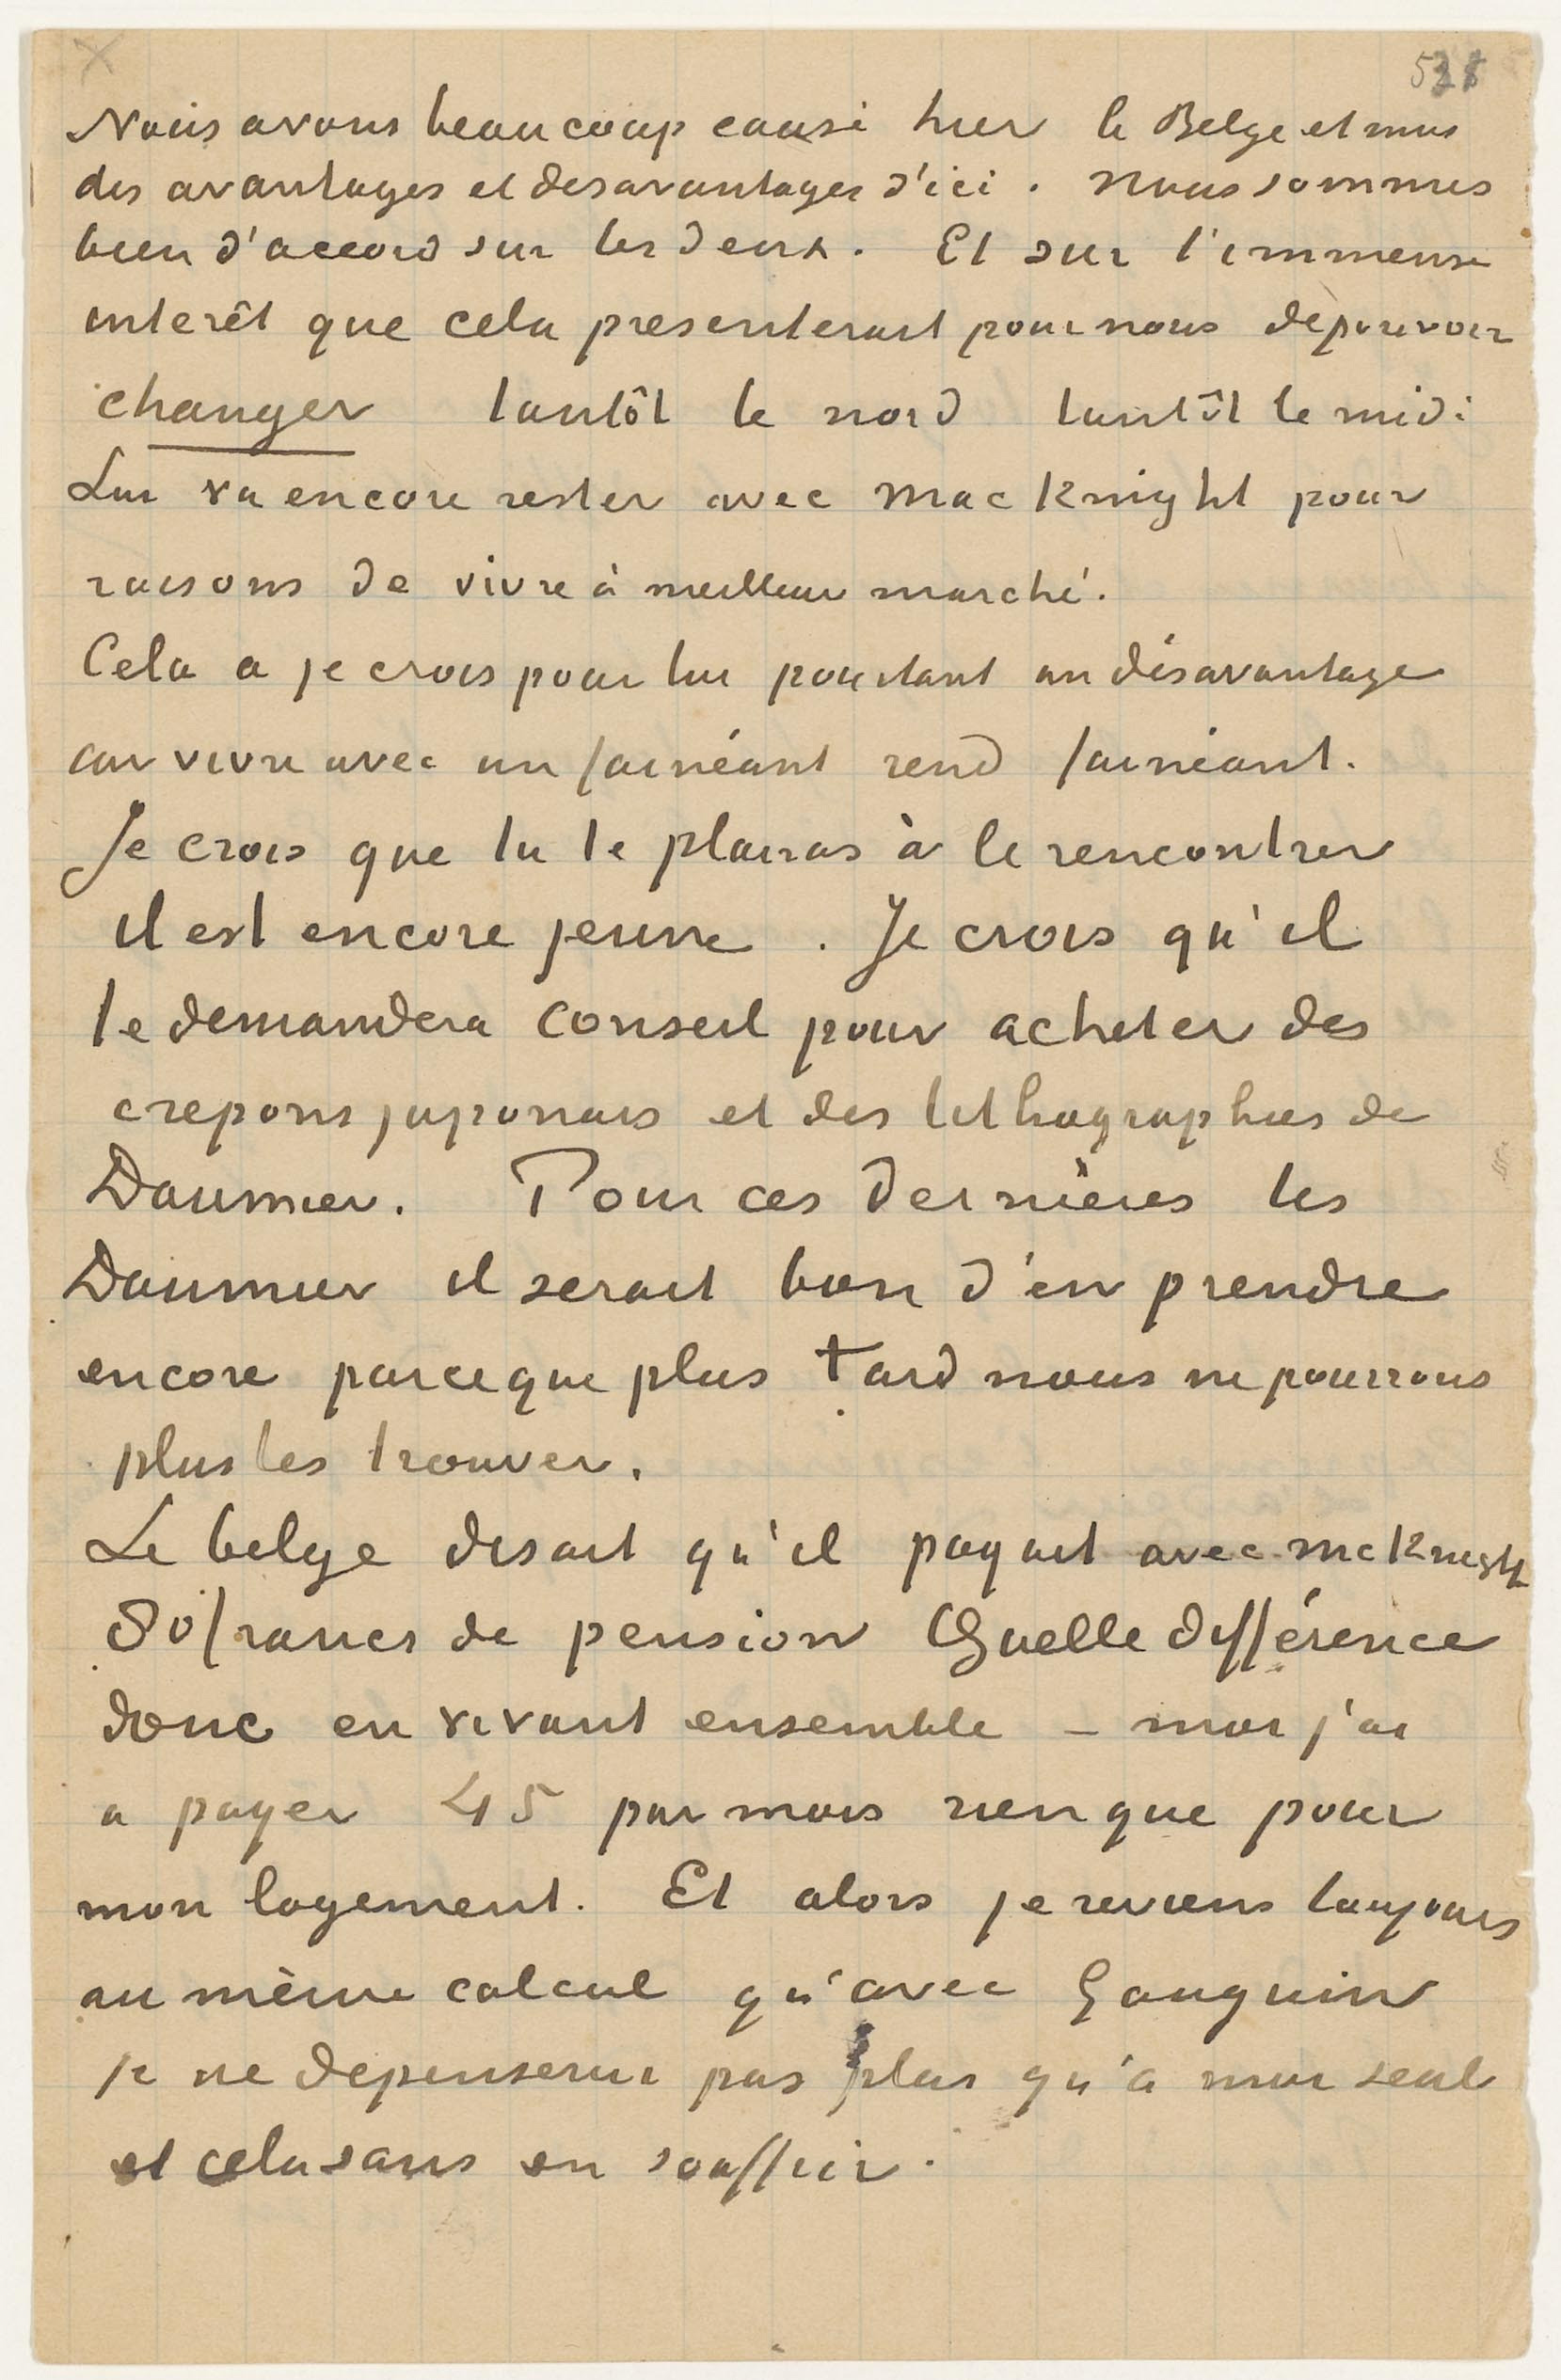 Nous avons beaucoup causé hier le Belge et moi
des avantages et desavantages d'ici. Nous sommes
bien d'accord sur les deux. Et sur l'immense
interêt que cela presenterait pour nous de pouvoir
changer tantôt le nord tantôt le midi
Lui va encore rester avec Mac Knight pour
raisons de vivre à meilleur marché.
Cela a je crois pour lui pourtant un désavantage
car vivre avec un fainéant rend fainéant.
Je crois que tu te plairas à le rencontrer
il est encore jeune. Je crois qu'il
te demandera conseil pour acheter des
crepons japonais et des lithographies de
Daumier. Pour ces dernières les
Daumier il serait bon d'en prendre
encore parceque plus tard nous ne pourrons
plus les trouver.
Le belge disait qu'il payait avec McKnight
80 francs de pension Quelle différence
donc en vivant ensemble – moi j'ai
a payer 45 par mois rien que pour
mon logement. Et alors je reviens toujours
au même calcul qu'avec Gauguin
je ne depenserai pas plus qu'à moi seul
et cela sans en souffrir.